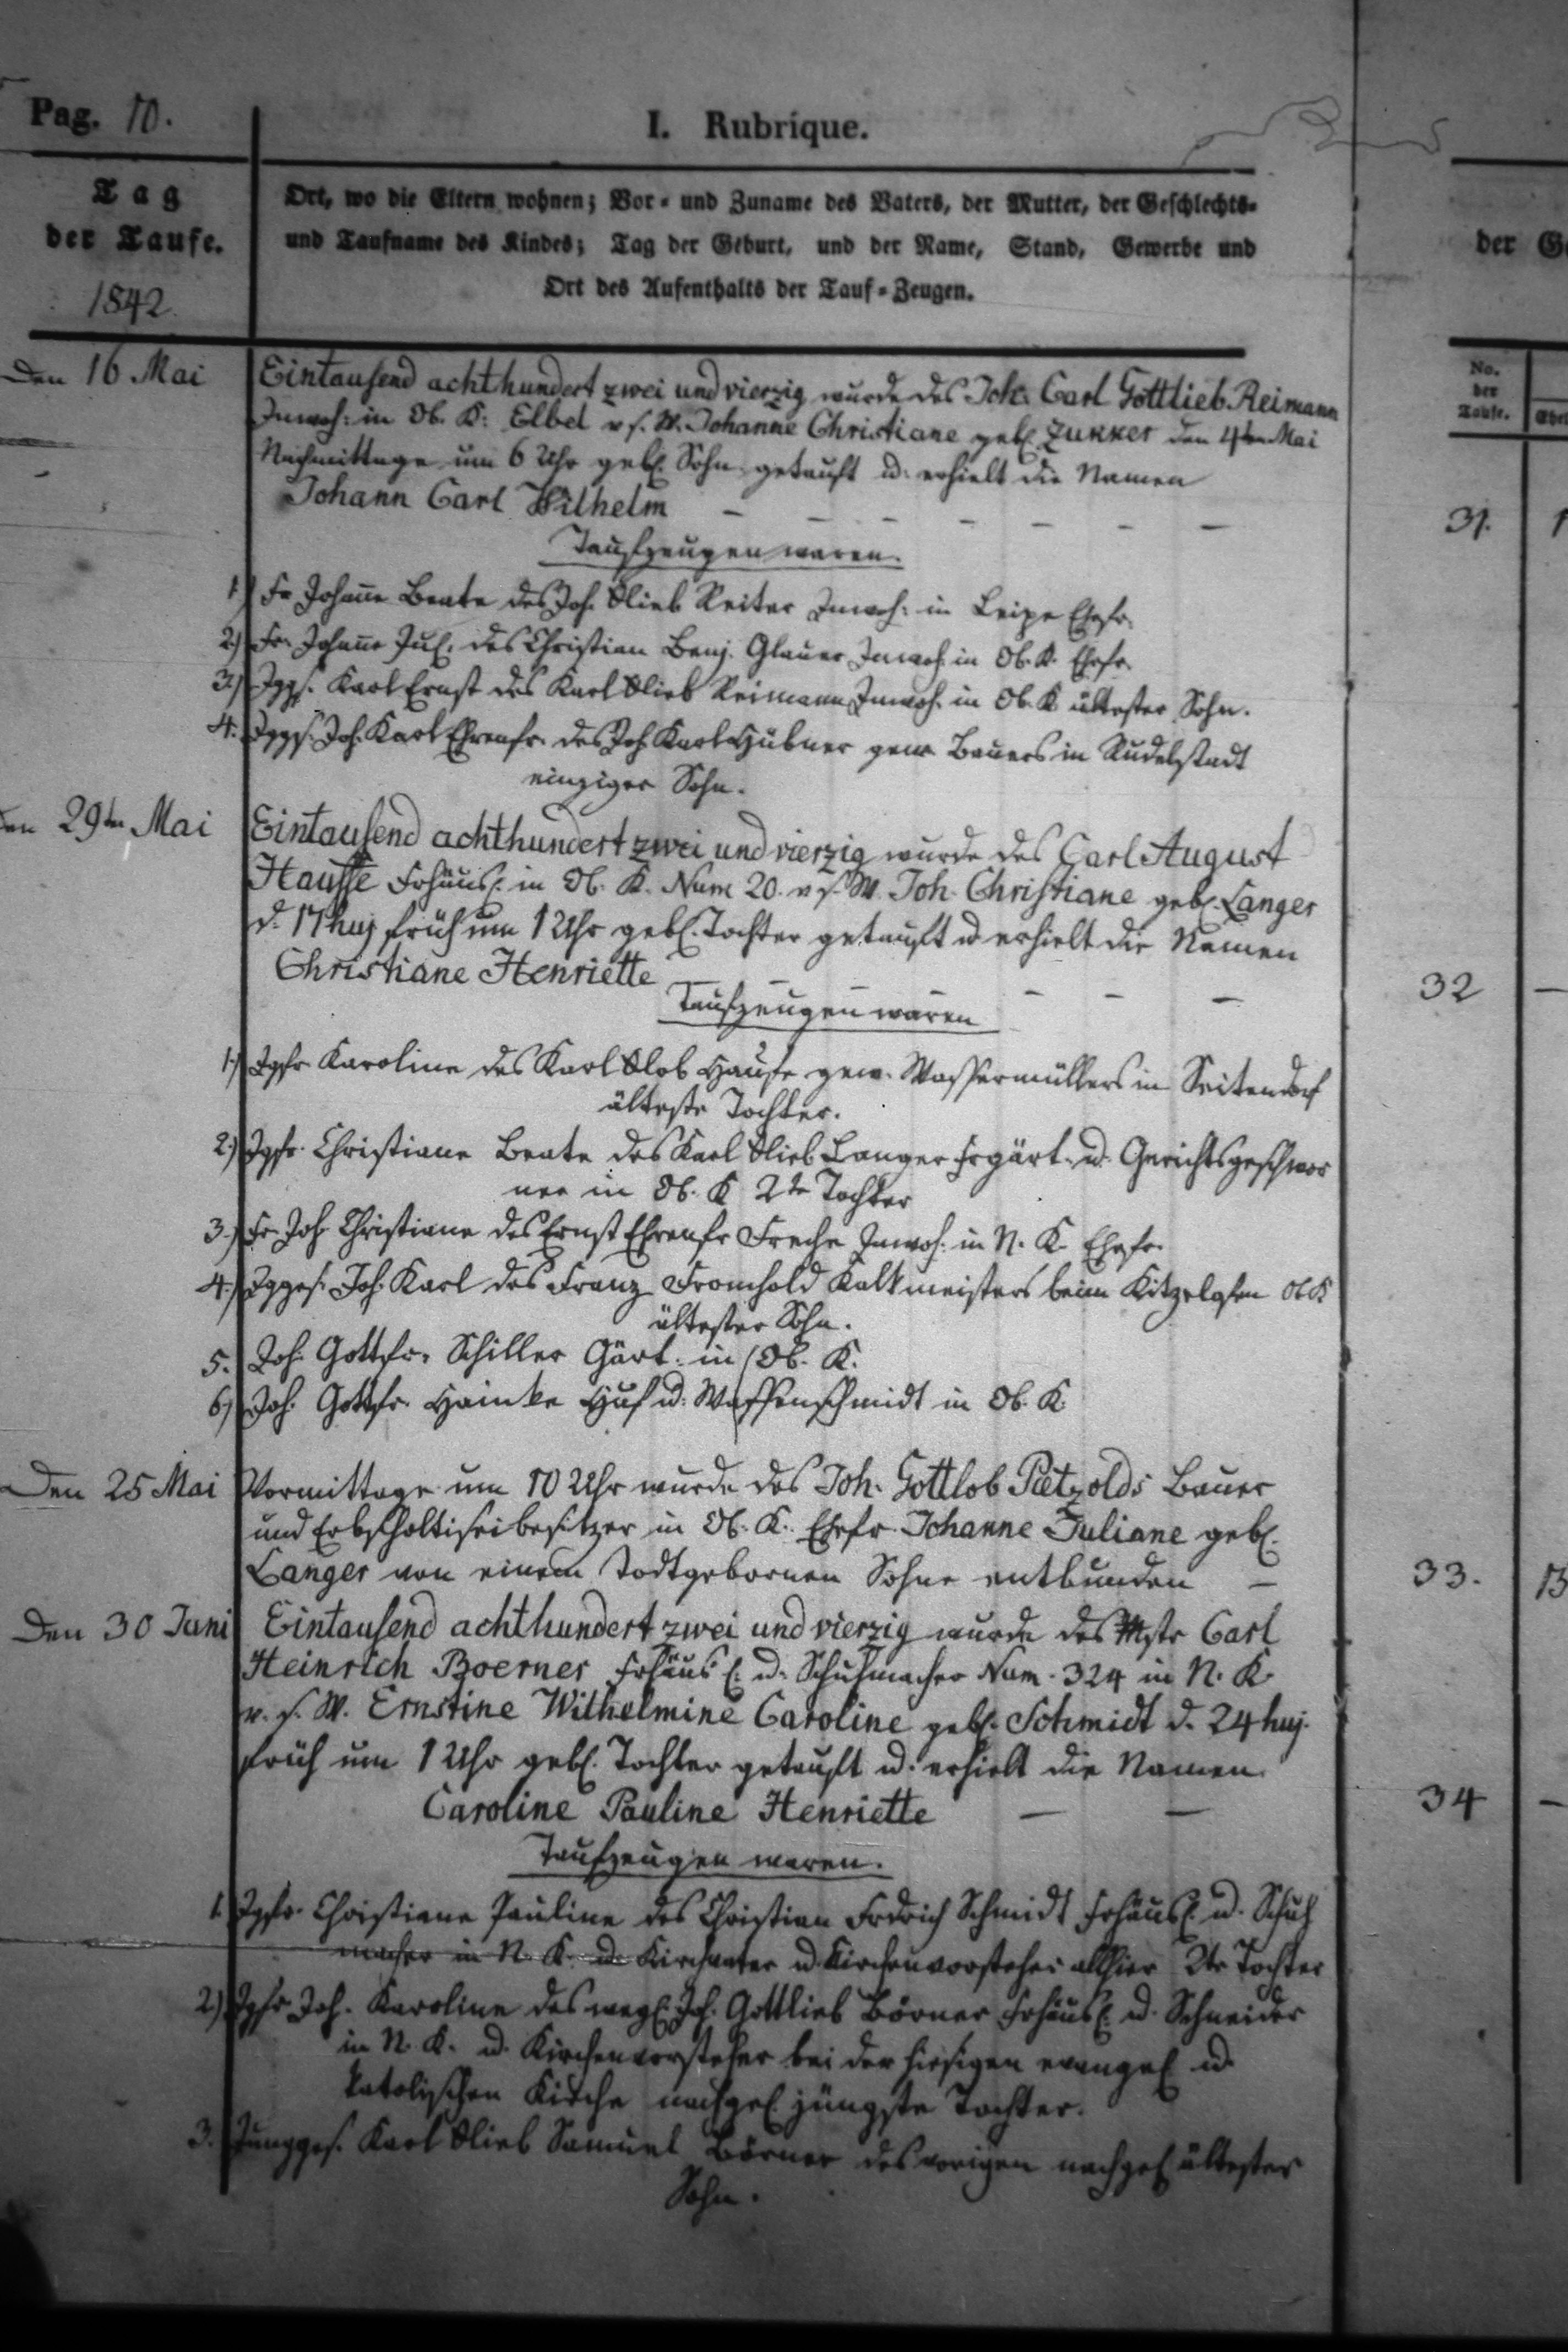 Pag. 10.
I. Rubrique.
Tag
der Taufe.
1842.
Ort, wo die Eltern wohnen; Vor- und Zuname des Vaters, der Mutter, der Geschlechts-
und Taufname des Kindes; Tag der Geburt, und der Name, Stand, Gewerbe und
Ort des Aufenthalts der Tauf-Zeugen.
Den 16 Mai
Eintausend achthundert zwei und vierzig wurde des Joh. Carl Gottlieb Reimann
Inwoh: in Ob. K: Elbel v s. W. Johanne Christiane geb. Zukker den 4ten Mai
Nachmittags um 6 Uhr geb. Sohn getauft u. erhielt die Namen
Johann Carl Wilhelm
Taufzeugen waren.
1.) Fr Johanne Beate des Joh. Glieb Reiter Inwoh: in Leipe Ehefr.
2.) Fr. Johanne Jul. des Christian Benj. Glauer Inwoh in Ob. K. Ehefr.
3.) Jggs. Karl Ernst des Karl Glieb Reimann Inwoh. in Ob. K ältester Sohn.
4. Jggs. Joh. Karl Ehrenfr. des Joh Karl Hübner gew. Bauers in Rudelstadt
einziger Sohn.
den 29ten Mai
Eintausend achthundert zwei und vierzig wurde des Carl August
Hausse Frhäusl. in Ob. K. Num 20. v s. W. Joh. Christiane geb. Langer
d. 17 huj früh um 1 Uhr geb. Tochter getauft u erhielt die Namen
Christiane Henriette
Taufzeugen waren
1.) Jgfr Karoline des Karl Glob Hause gew. Wassermüllers in Seitendorf
älteste Tochter.
2.) Jgfr. Christiane Beate des Karl Glieb Langer Frgärt. u. Gerichtsgeschwor
ner in Ob. K 2te Tochter
3.) Fr. Joh Christiane des Ernst Ehrenfr Freche Inwoh. in N. K. Ehefr.
4.) Jgges. Joh. Karl des Franz Fromhold Kalkmeisters beim Kitzelofen Ob K
ältester Sohn.
5. Joh. Gottfr. Schiller Gärt. in Ob. K.
6.) Joh. Gottfr. Hainke Huf u. Waffenschmidt in Ob. K.
Den 25 Mai
Vormittags um 10 Uhr wurde des Joh. Gottlob Pätzolds Bauer
und Erbscholtiseibesitzer in Ob. K. Ehefr. Johanne Juliane geb.
Langer von einem todtgebornen Sohne entbunden
Den 30 Juni
Eintausend achthundert zwei und vierzig wurde des Mstr Carl
Heinrich Boerner Frhäusl. u. Schuhmacher Num. 324 in N. K.
v. s. W. Ernstine Wilhelmine Caroline geb. Schmidt d. 24 huj.
früh um 1 Uhr geb. Tochter getauft u. erhielt die Namen
Caroline Pauline Henriette
Taufzeugen waren.
1. Jgfr. Christiane Pauline des Christian Frdrich Schmidt Frhäusl. u. Schuh
macher in N. K. u. Kirchvater u Kirchenvorsteher allhier 2te Tochter
2.) Jgfr Joh. Karoline des wegl. Joh. Gottlieb Börner Frhäusl. u. Schneider
in N. K. u. Kirchenvorsteher bei der hiesigen evangel u.
katolischen Kirche nachgel jüngste Tochter.
3. Jungges. Karl Glieb Samuel Börner des vorigen nachgel ältester
Sohn.
No.
der
Taufe.
31.
32
33.
34